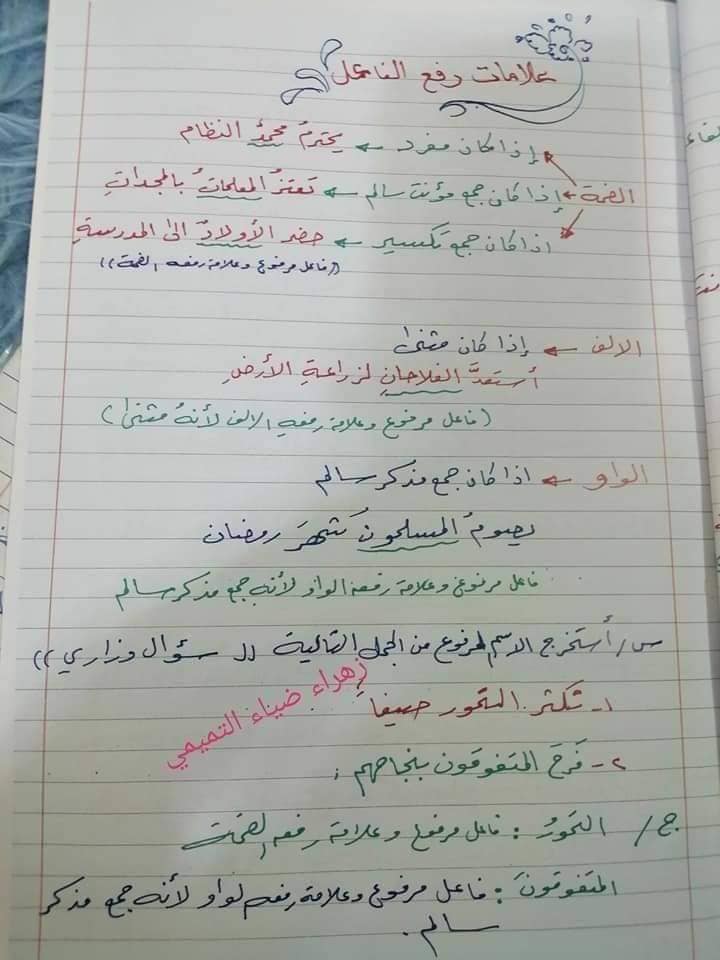 علامات رفع الفاعل
إذا كان مفرد ← يحترمُ محمدٌ النظام
الضمة ← إذا كان جمع مؤنث سالم ← تعتزُ المعلماتُ بالمجداتِ
اذا كان جمع تكسير ← حضر الأولادُ الى المدرسةِ
((فاعل مرفوع وعلامة رفعه الضمة))
الالف ← إذا كان مثنى
أستعدَّ الفلاحانِ لزراعةِ الأرضِ
(فاعل مرفوع وعلامة رفعهِ الالف لأنهُ مثنى)
الواو ← اذا كان جمع مذكر سالم
يصومُ المسلمون شهرَ رمضان
فاعل مرفوع وعلامة رفعه الواو لأنه جمع مذكر سالم
س/ أستخرج الاسم المرفوع من الجمل التالية (( سؤال وزاري ))
زهراء ضياء التميمي
١- تكثر التمور صيفاً
٢- فَرِحَ المتفوقون بنجاحهم :
ج/ التمورُ : فاعل مرفوع وعلامة رفعه الضمة
المتفوقونَ : فاعل مرفوع وعلامة رفعه لواو لأنه جمع مذكر
سالم .